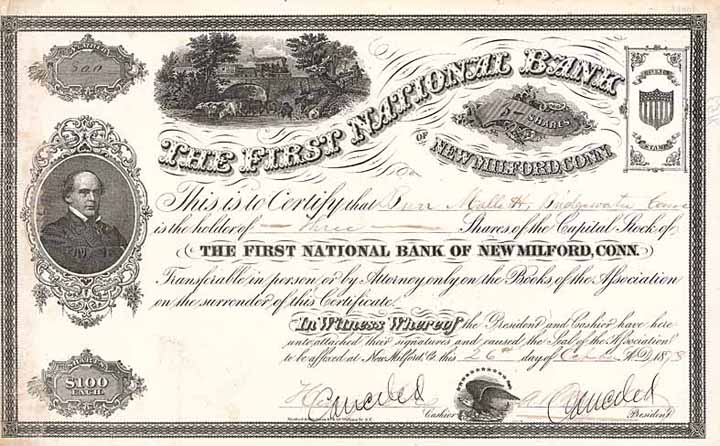 300
THE FIRST NATIONAL BANK
SHARES
OF
NEW MILFORD, CONN.
STAMP
This is to Certify that Burr Mallett, Bridgewater Conn
is the holder of three Shares of the Capital Stock of
THE FIRST NATIONAL BANK OF NEW MILFORD, CONN.
Transferable in person or by Attorney only on the Books of the Association
on the surrender of this Certificate.
In Witness Whereof the President and Cashier have here
unto attached their signatures and caused the Seal of the Association
to be affixed at New Milford, Ct. this 26th day of A.D. 18
$100
EACH
Canceled
Canceled
Cashier
President